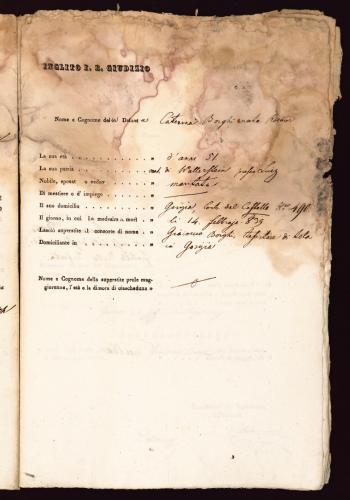 INCLITO I. R. GIUDIZIO
Nome e Cognome del Defunt a Caterina Borghi nata
La sua età . . . . . . . . . . . . „ d'anni 51
La sua patria . . . . . . . . . . di
Nobile, sposat o vedov „ maritata
Di mestiere o d' impiego . . . . . . „
Il suo domicilio . . . . . . . . . „ Gorizia, Corte del Castello No. 498
Il giorno, in cui la medesima morì . . „ li 14. febbrajo 839
Lasciò superstite il consorte di nome . „ Giacomo Borghi, di Seta
Domiciliante in . . . . . . . . . „ in Gorizia
Nome e Cognome della superstite prole mag-
giorenne, l'età e la dimora di ciascheduno „